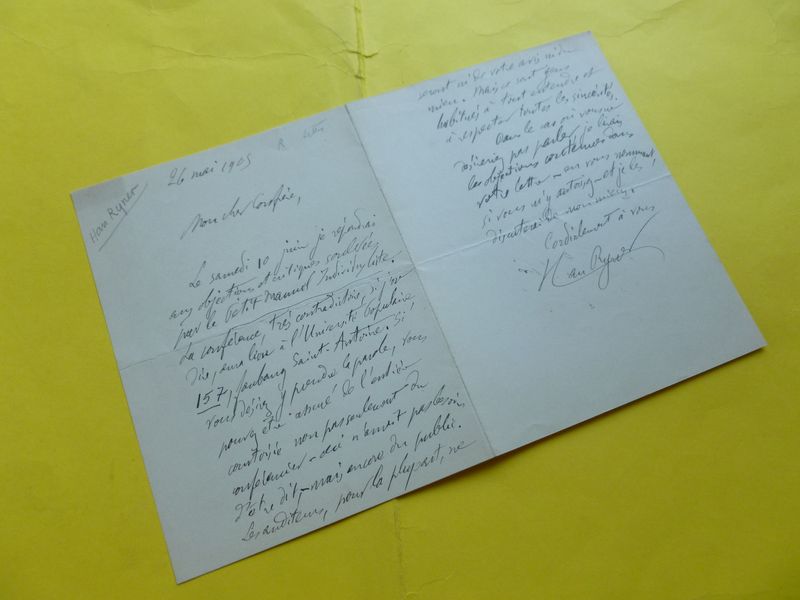 Han Ryner
26 mai 1905
Mon cher Confrère,
Le samedi 10 juin je répondrai
aux objections et critiques soulevées
par le Petit Manuel Individualiste.
La conférence, très contradictoire, si j'ose
dire, aura lieu à l'Université Populaire
157, faubourg Saint-Antoine. Si
vous désirez y prendre la parole, vous
pouvez être assuré de l'entière
courtoisie non pas seulement du
conférencier - ceci n'avait pas besoin
d'être dit, - mais encore du public.
Les auditeurs, pour la plupart, ne
seront ni de votre avis ni du
mien. Mais ce sont gens
habitués à tout entendre et
à respecter toutes les sincérités.
Dans le cas où vous ne
désireriez pas parler, je lirais
les objections contenues dans
votre lettre - en vous nommant
si vous m'y autorisez - et je les
discuterai de mon mieux.
Cordialement à vous
Han Ryner